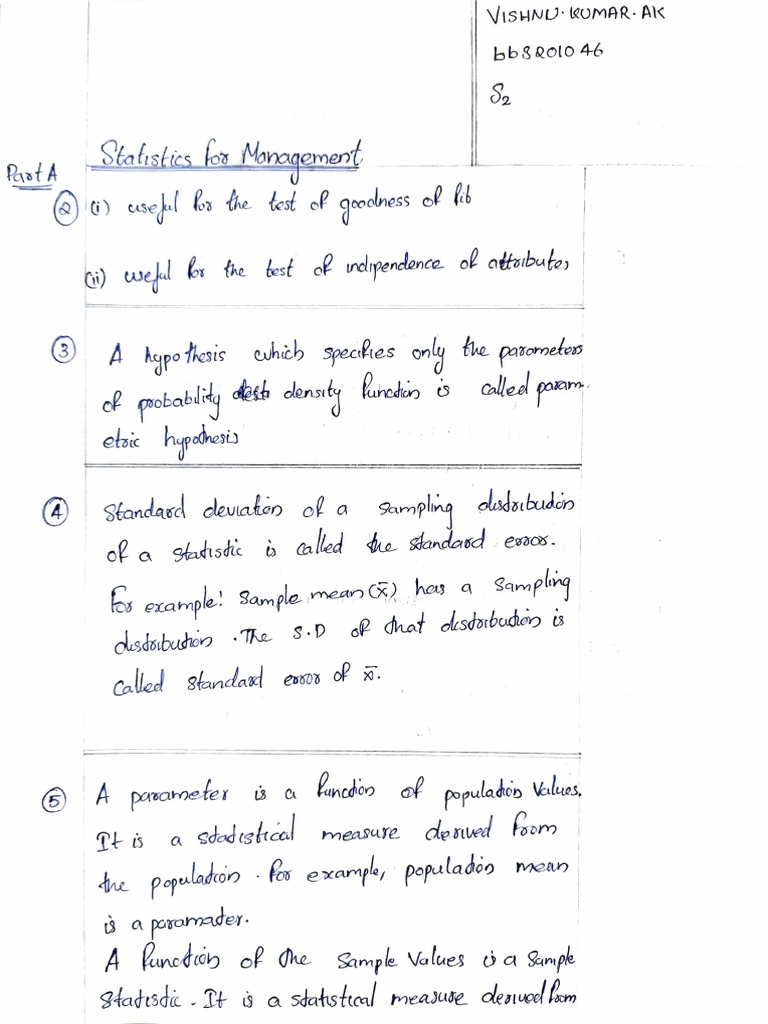 VISHNU.KUMAR.AK
bbsR01046
S2
Statistics for Management
Part A
② (i) useful for the test of goodness of fit
(ii) useful for the test of indipendence of attributes
③ A hypothesis which specifies only the parameters
of probability density function is called param
etric hypothesis
④ Standard deviation of a sampling distribution
of a statistic is called the standard error.
For example: Sample mean (x̄) has a sampling
distribution. The S.D of that distribution is
called standard error of x̄.
⑤ A parameter is a function of population values.
It is a statistical measure derived from
the population. for example, population mean
is a paramater.
A function of the sample values is a sample
statistic. It is a statistical measure derived from